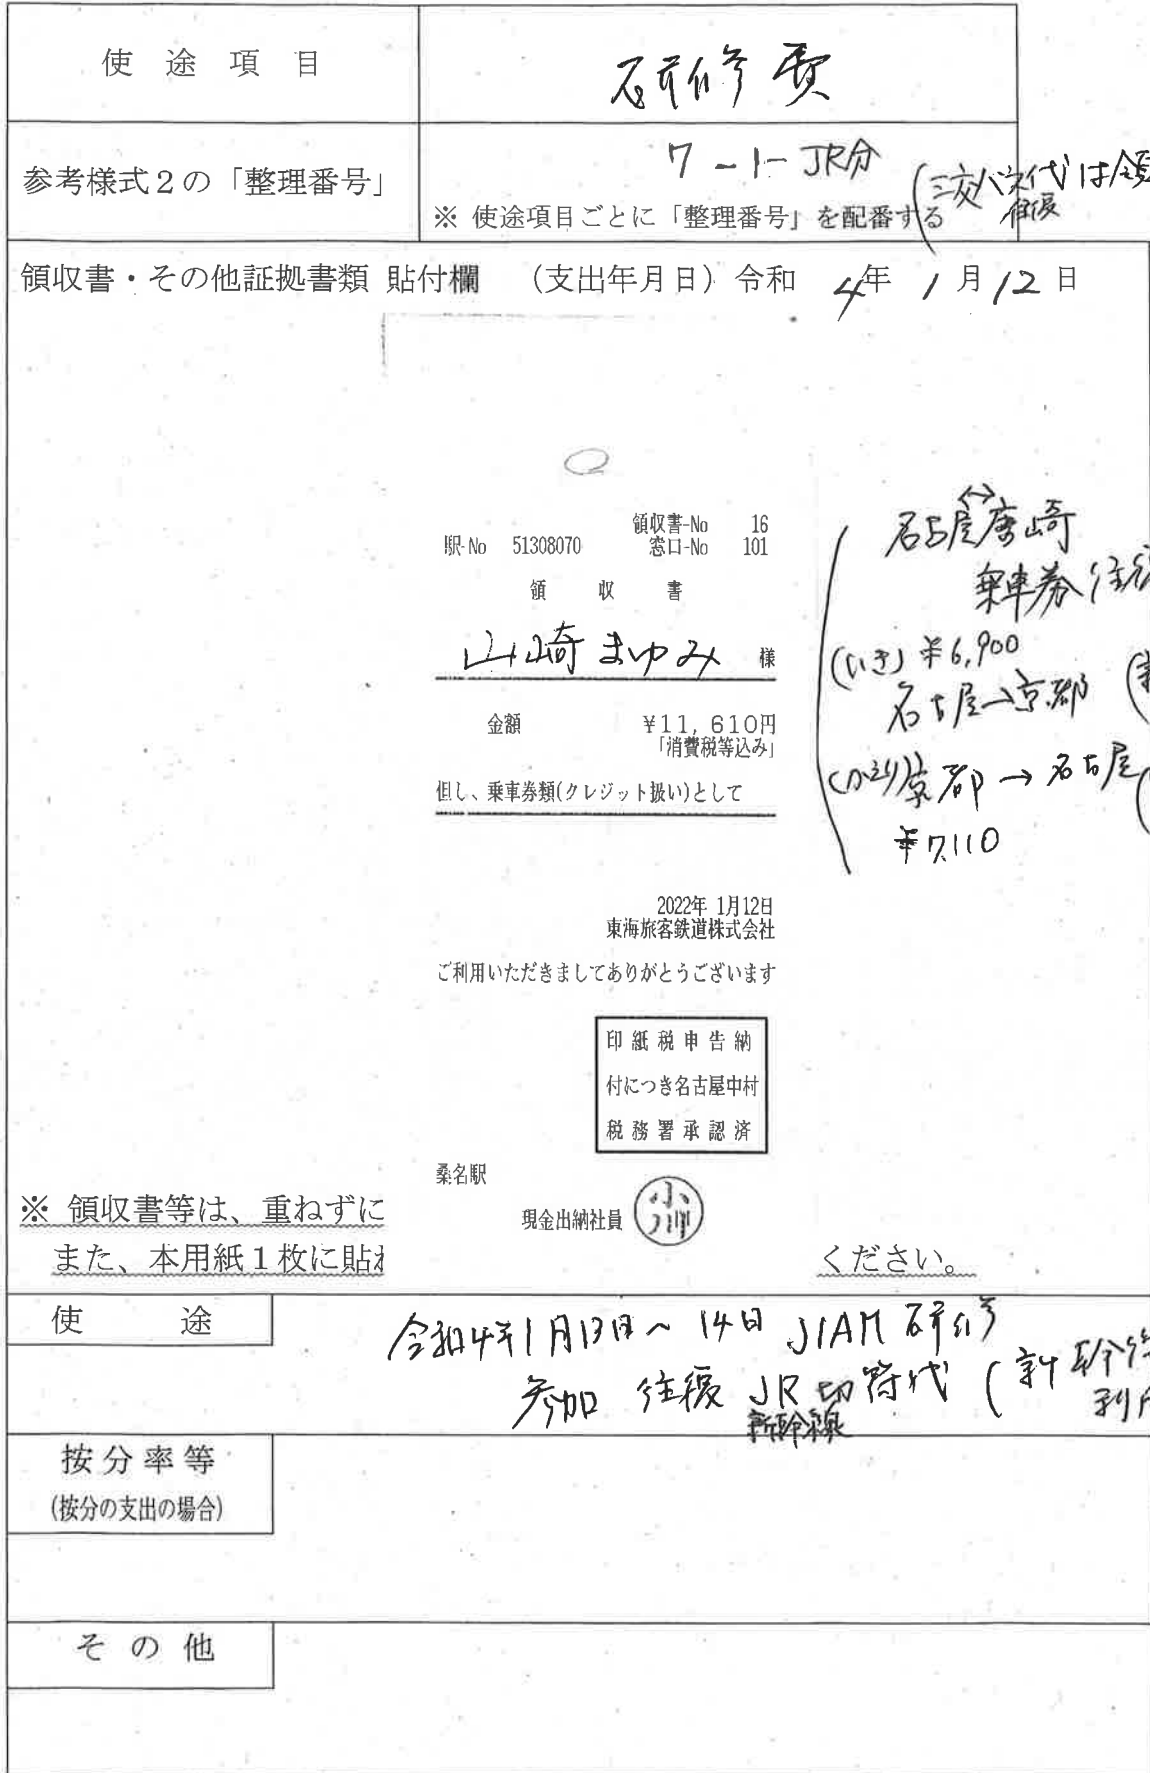 使途項目
研修費
参考様式2の「整理番号」
7-1-JR分
(三交バス代は領
往復
※ 使途項目ごとに「整理番号」を配番する
領収書・その他証拠書類 貼付欄 (支出年月日) 令和 4年 1月12日
領収書-No 16
駅-No 51308070 窓口-No 101
領収書
山崎まゆみ 様
金額 ¥11,610円
「消費税等込み」
但し、乗車券類(クレジット扱い)として
2022年 1月12日
東海旅客鉄道株式会社
ご利用いただきましてありがとうございます
印紙税申告納
付につき名古屋中村
税務署承認済
桑名駅
現金出納社員 小川
名古屋↔唐崎
乗車券 往復
(いき) ¥6,900
名古屋→京都
(かえり) 京都→名古屋
¥7,110
※ 領収書等は、重ねずに
また、本用紙1枚に貼れ
ください。
使途
令和4年1月13日～14日 JIAM 研修
参加 往復 JR 切符代 (新幹線
新幹線
利用
按分率等
(按分の支出の場合)
その他